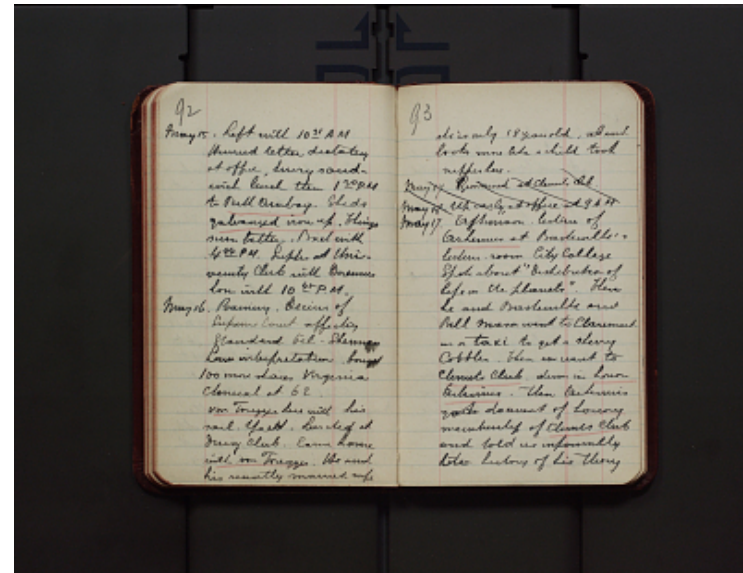 92
May 15. Left with 10 31 A M
Hurried letter dictating
at office, hurry sand-
wich lunch then 1 20 P M
to Perth Amboy. Sheds
galvanized iron up. Things
run better. Back with
4 P.M. Supper at Uni-
versity Club with
until 10 P.M.
May 16. Rainey. Decision of
Supreme Court affecting
Standard Oil - Sherman
Law interpretation. bought
100 more shares Virginia
Chemical at 62.
von here with his
sail Yacht. Lunched at
Club. Came home
with von. He and
his recently married wife
93
she is only 18 years old, and
looks more like a child took
supper here.
May 17. Remained at Chemists Club
May 18. Up early, at office at 9 A M
May 17. Afternoon lecture of
Arrhenius at Baskerville's
lecture room City College
Spoke about "Distribution of
Life in the Planets". Then
he and Baskerville and
Pell and I went to Claremont
in a taxi to get a sherry
Cobbler. Then we went to
Chemists Club dinner in honor
Arrhenius. Then Arrhenius
gets document of honorary
membership of Chemists Club
and told us informally
the history of his theory